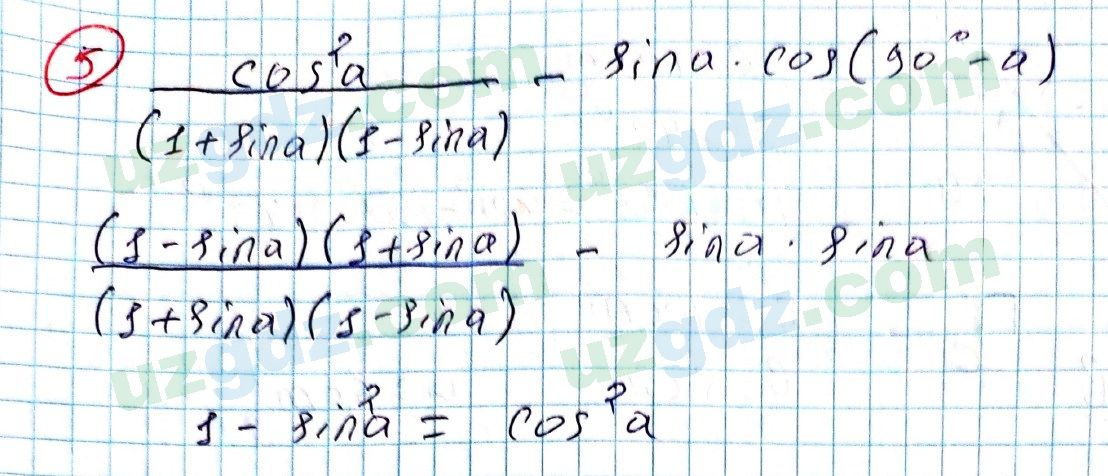 5
cos²a / (1+sina)(1-sina) - sina · cos(90°-a)
(1-sina)(1+sina) / (1+sina)(1-sina) - sina · sina
1 - sin²a = cos²a
uzgdz.com
uzgdz.com
uzgdz.com
uzgdz.com